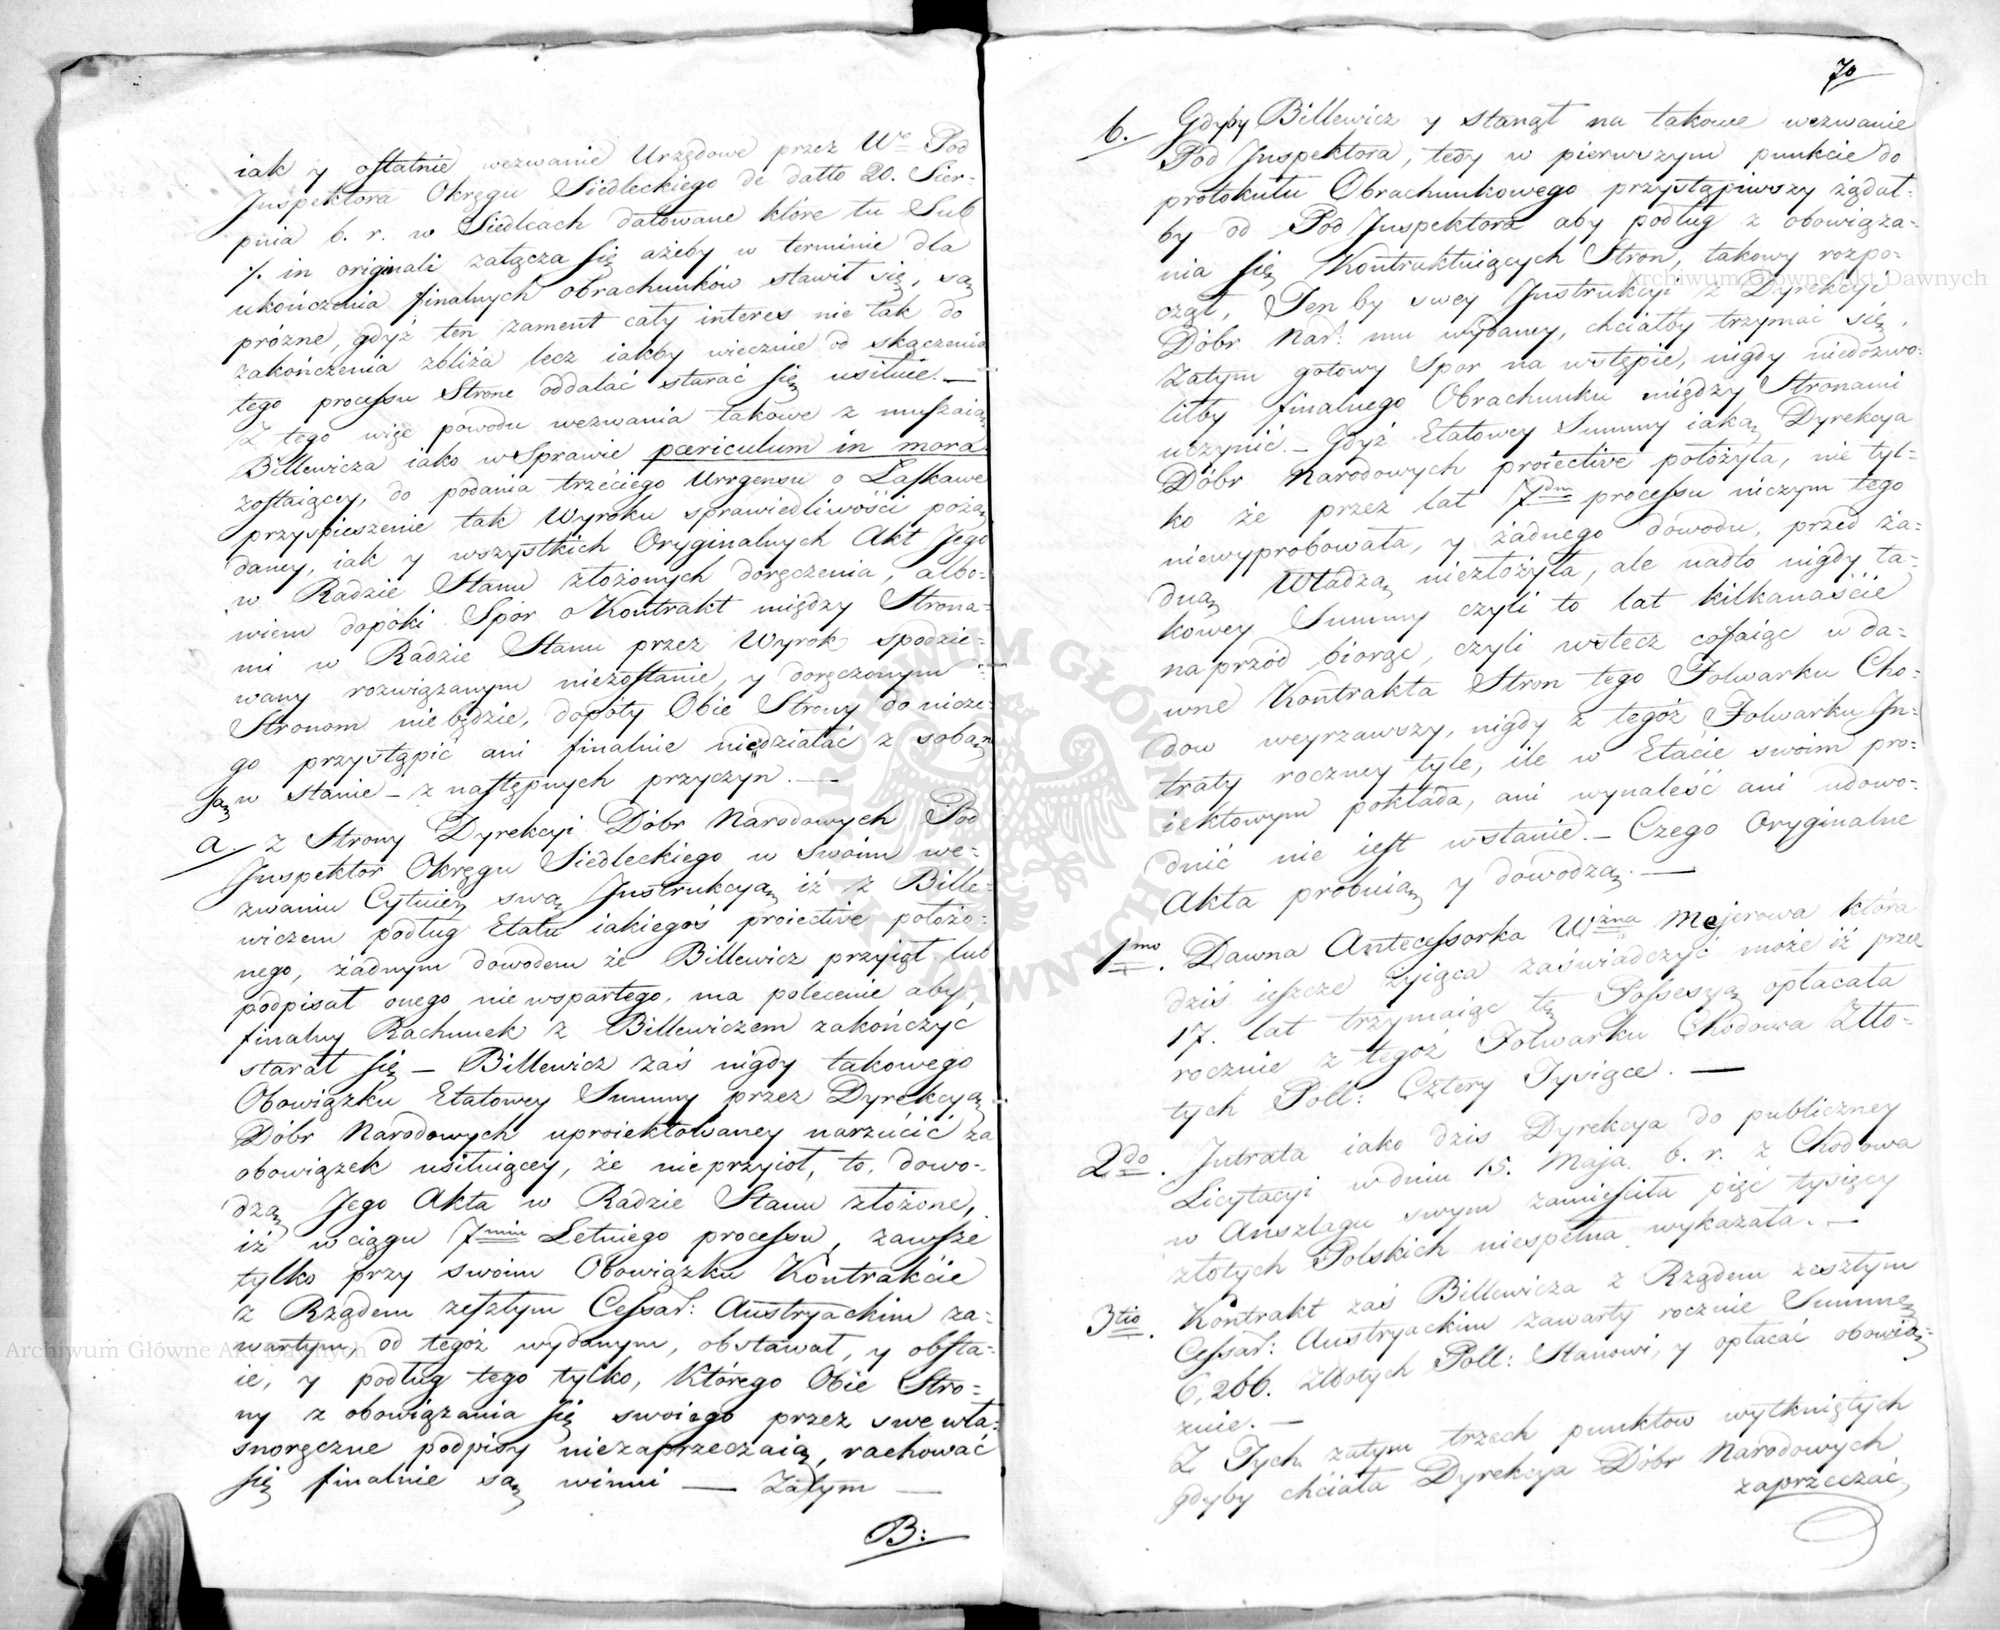 iak y ostatnie wezwanie Urzędowe przez Wo Pod
Inspektora Okręgu Siedleckiego de datto 20. Sier-
pnia b. r. w Siedlcach datowane które tu Sub
./. in originali załącza się ażeby w terminie dla
ukończenia finalnych obrachunków stawił się, są
próżne, gdyż ten zament cały interes nie tak do
zakończenia zbliża lecz iakby wiecznie od skączenia
tego processu Strone oddalać starać się usilnie. —
Z tego więc powodu wezwania takowe z muszaią
Billewicza iako w Sprawie pæriculum in mora
zostaiącey, do podania trzéciego Urrgensu o Łaskawe
przyspieszenie tak Wyroku sprawiedliwości pożą
daney, iak y wszystkich Oryginalnych Akt Jego
w Radzie Stanu złożonych doręczenia, albo-
wiem dopóki Spór o Kontrakt między Strona-
mi w Radzie Stanu przez Wyrok spodzie-
wany rozwiązanym niezostanie, y doręczonym
Stronom niebędzie, dopóty Obie Strony do nicze-
go przystąpić ani finalnie niedziałać z sobą
są w stanie – z następnych przyczyn. —
a. z Strony Dyrekcyi Dóbr Narodowych Pod
Inspektor Okręgu Siedleckiego w swoim we-
zwaniu Cytuię swą Instrukcyą iż z Bille-
wiczem podług Etatu iakiegoś proiective położo-
nego, żadnym dowodem że Billewicz przyiął lub
podpisał onego nie wspartego, ma polecenie aby
finalny Rachunek z Billewiczem zakończyć
starał się – Billewicz zaś nigdy takowego
Obowiązku Etatowey Summy przez Dyrekcyą
Dóbr Narodowych uproiektowaney narzucić za
obowiązek usiłuiącey, że nie przyioł, to dowo-
dzą Jego Akta w Radzie Stanu złożone,
iż wciągu 7miu Letniego processu, zawsze
tylko przy swoim Obowiązku Kontrakcie
z Rządem zeszłym Cessar: Austryackim za-
wartym od tegoż wydanym, obstawał, y obsta-
ie, y podług tego tylko, którego Obie Stro-
ny z obowiązania się swoiego przez swe wła-
snoręczne podpisy niezaprzeczaią, rachować
się finalnie są winni — Zatym —
B:
70
b. Gdyby Billewicz y stanął na takowe wezwanie
Pod Inspektora, tedy w pierwszym punkcie do
protokułu Obrachunkowego przystąpiwszy żądał-
by od Pod Inspektora aby podług z obowiąza-
nia się Kontraktuiących Stron, takowy rozpo-
czął, Ten by swey Instrukcyi z Dyrekcyi
Dóbr Nar: mu wydaney, chciałby trzymać się,
Zatym gotowy Spor na wstępie, nigdy niedozwo-
liłby finalnego Obrachunku między Stronami
uczynić. – Gdyż Etatowey Summy iaką Dyrekcya
Dóbr Narodowych proiective położyła, nie tyl-
ko że przez lat 7dm processu niczym tego
niewyprobowała, y żadnego dowodu, przed ża-
dną Władzą niezłożyła, ale nadto nigdy ta-
kowey Summy czyli to lat kilkanaście
naprzód biorąc, czyli wstecz cofaiąc w da-
wne Kontrakta Stron tego Folwarku Cho-
dow weyrzawszy, nigdy z tegóż Folwarku In-
traty roczney tyle, ile w Etacie swoim pro-
iektowym pokłada, ani wynaleść ani udowo-
dnić nie iest wstanie. – Czego Oryginalne
Akta probuią y dowodzą. —
1mo. Dawna Antecessorka Wżna Mejerowa która
dziś ieszcze żyiąca zaświadczyć może iż przez
17. lat trzymaiąc tę Possesyą opłacała
rocznie z tegóż Folwarku Chodowa Zło-
tych Poll: Cztery Tysiące. —
2do. Intrata iako dzis Dyrekcya do publiczney
Licytacyi wdniu 15. Maja b. r. z Chodowa
w Anszlagu swym zamieściła pięć tysięcy
złotych Polskich niespełna wykazała. —
3tio. Kontrakt zaś Billewicza z Rządem zeszłym
Cessar: Austryackim zawarty rocznie Summę
6,266. Złłotych Poll: Stanowi, y opłacać obowią-
zuie. —
Z Tych zatym trzech punktow wytkniętych
gdyby chciała Dyrekcya Dóbr Narodowych
zaprzeczać
Archiwum Główne Akt Dawnych
Archiwum Główne Akt Dawnych
ARCHIWUM GŁÓWNE AKT DAWNYCH